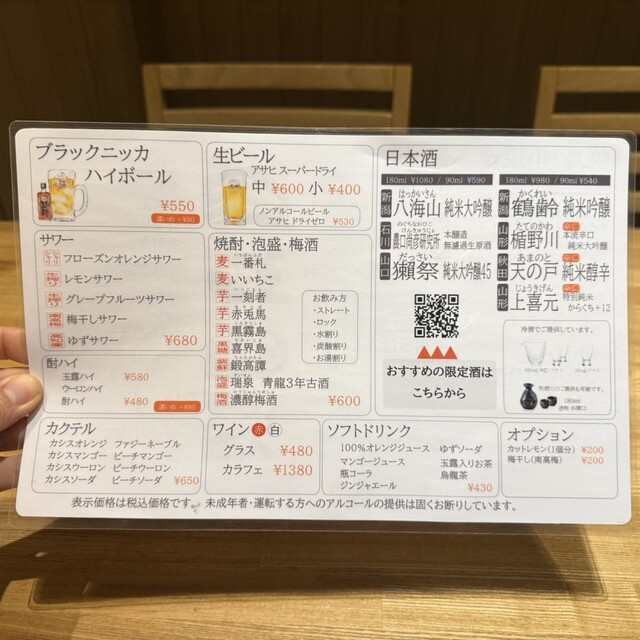 ブラックニッカ
ハイボール
¥550
濃いめ +¥80
生ビール
アサヒ スーパードライ
中 ¥600 小 ¥400
ノンアルコールビール
アサヒ ドライゼロ ¥530
サワー
フローズンオレンジサワー
レモンサワー
グレープフルーツサワー
梅干しサワー
ゆずサワー ¥680
酎ハイ
玉露ハイ ¥580
ウーロンハイ
酎ハイ ¥480
濃いめ +¥80
焼酎・泡盛・梅酒
麦 一番札
麦 いいちこ
芋 一刻者
芋 赤兎馬
芋 黒霧島
黒糖 喜界島
紫蘇 鍛高譚
泡盛 瑞泉 青龍3年古酒
梅酒 濃醇梅酒
¥600
お飲み方
・ストレート
・ロック
・水割り
・炭酸割り
・お湯割り
日本酒
180ml ¥1080 / 90ml ¥590
新潟 八海山 はっかいさん 純米大吟醸
石川 農口尚彦研究所 のぐちなおひこけんきゅうじょ 本醸造 無濾過生原酒
山口 獺祭 だっさい 純米大吟醸45
おすすめの限定酒は
こちらから
180ml ¥980 / 90ml ¥540
新潟 鶴齢 かくれい 純米吟醸
山形 楯野川 たてのかわ 辛口 本流辛口 純米大吟醸
秋田 天の戸 あまのと 辛口 純米醇辛
山形 上喜元 じょうきげん 辛口 特別純米 からくち+12
冷酒でご提供しています。
カクテル
カシスオレンジ ファジーネーブル
カシスマンゴー ピーチマンゴー
カシスウーロン ピーチウーロン
カシスソーダ ピーチソーダ ¥650
ワイン 赤 白
グラス ¥480
カラフェ ¥1380
ソフトドリンク
100%オレンジジュース ゆずソーダ
マンゴージュース 玉露入りお茶
瓶コーラ 烏龍茶
ジンジャエール ¥430
オプション
カットレモン(1個分) ¥200
梅干し(南高梅) ¥200
表示価格は税込価格です。未成年者・運転する方へのアルコールの提供は固くお断りしています。